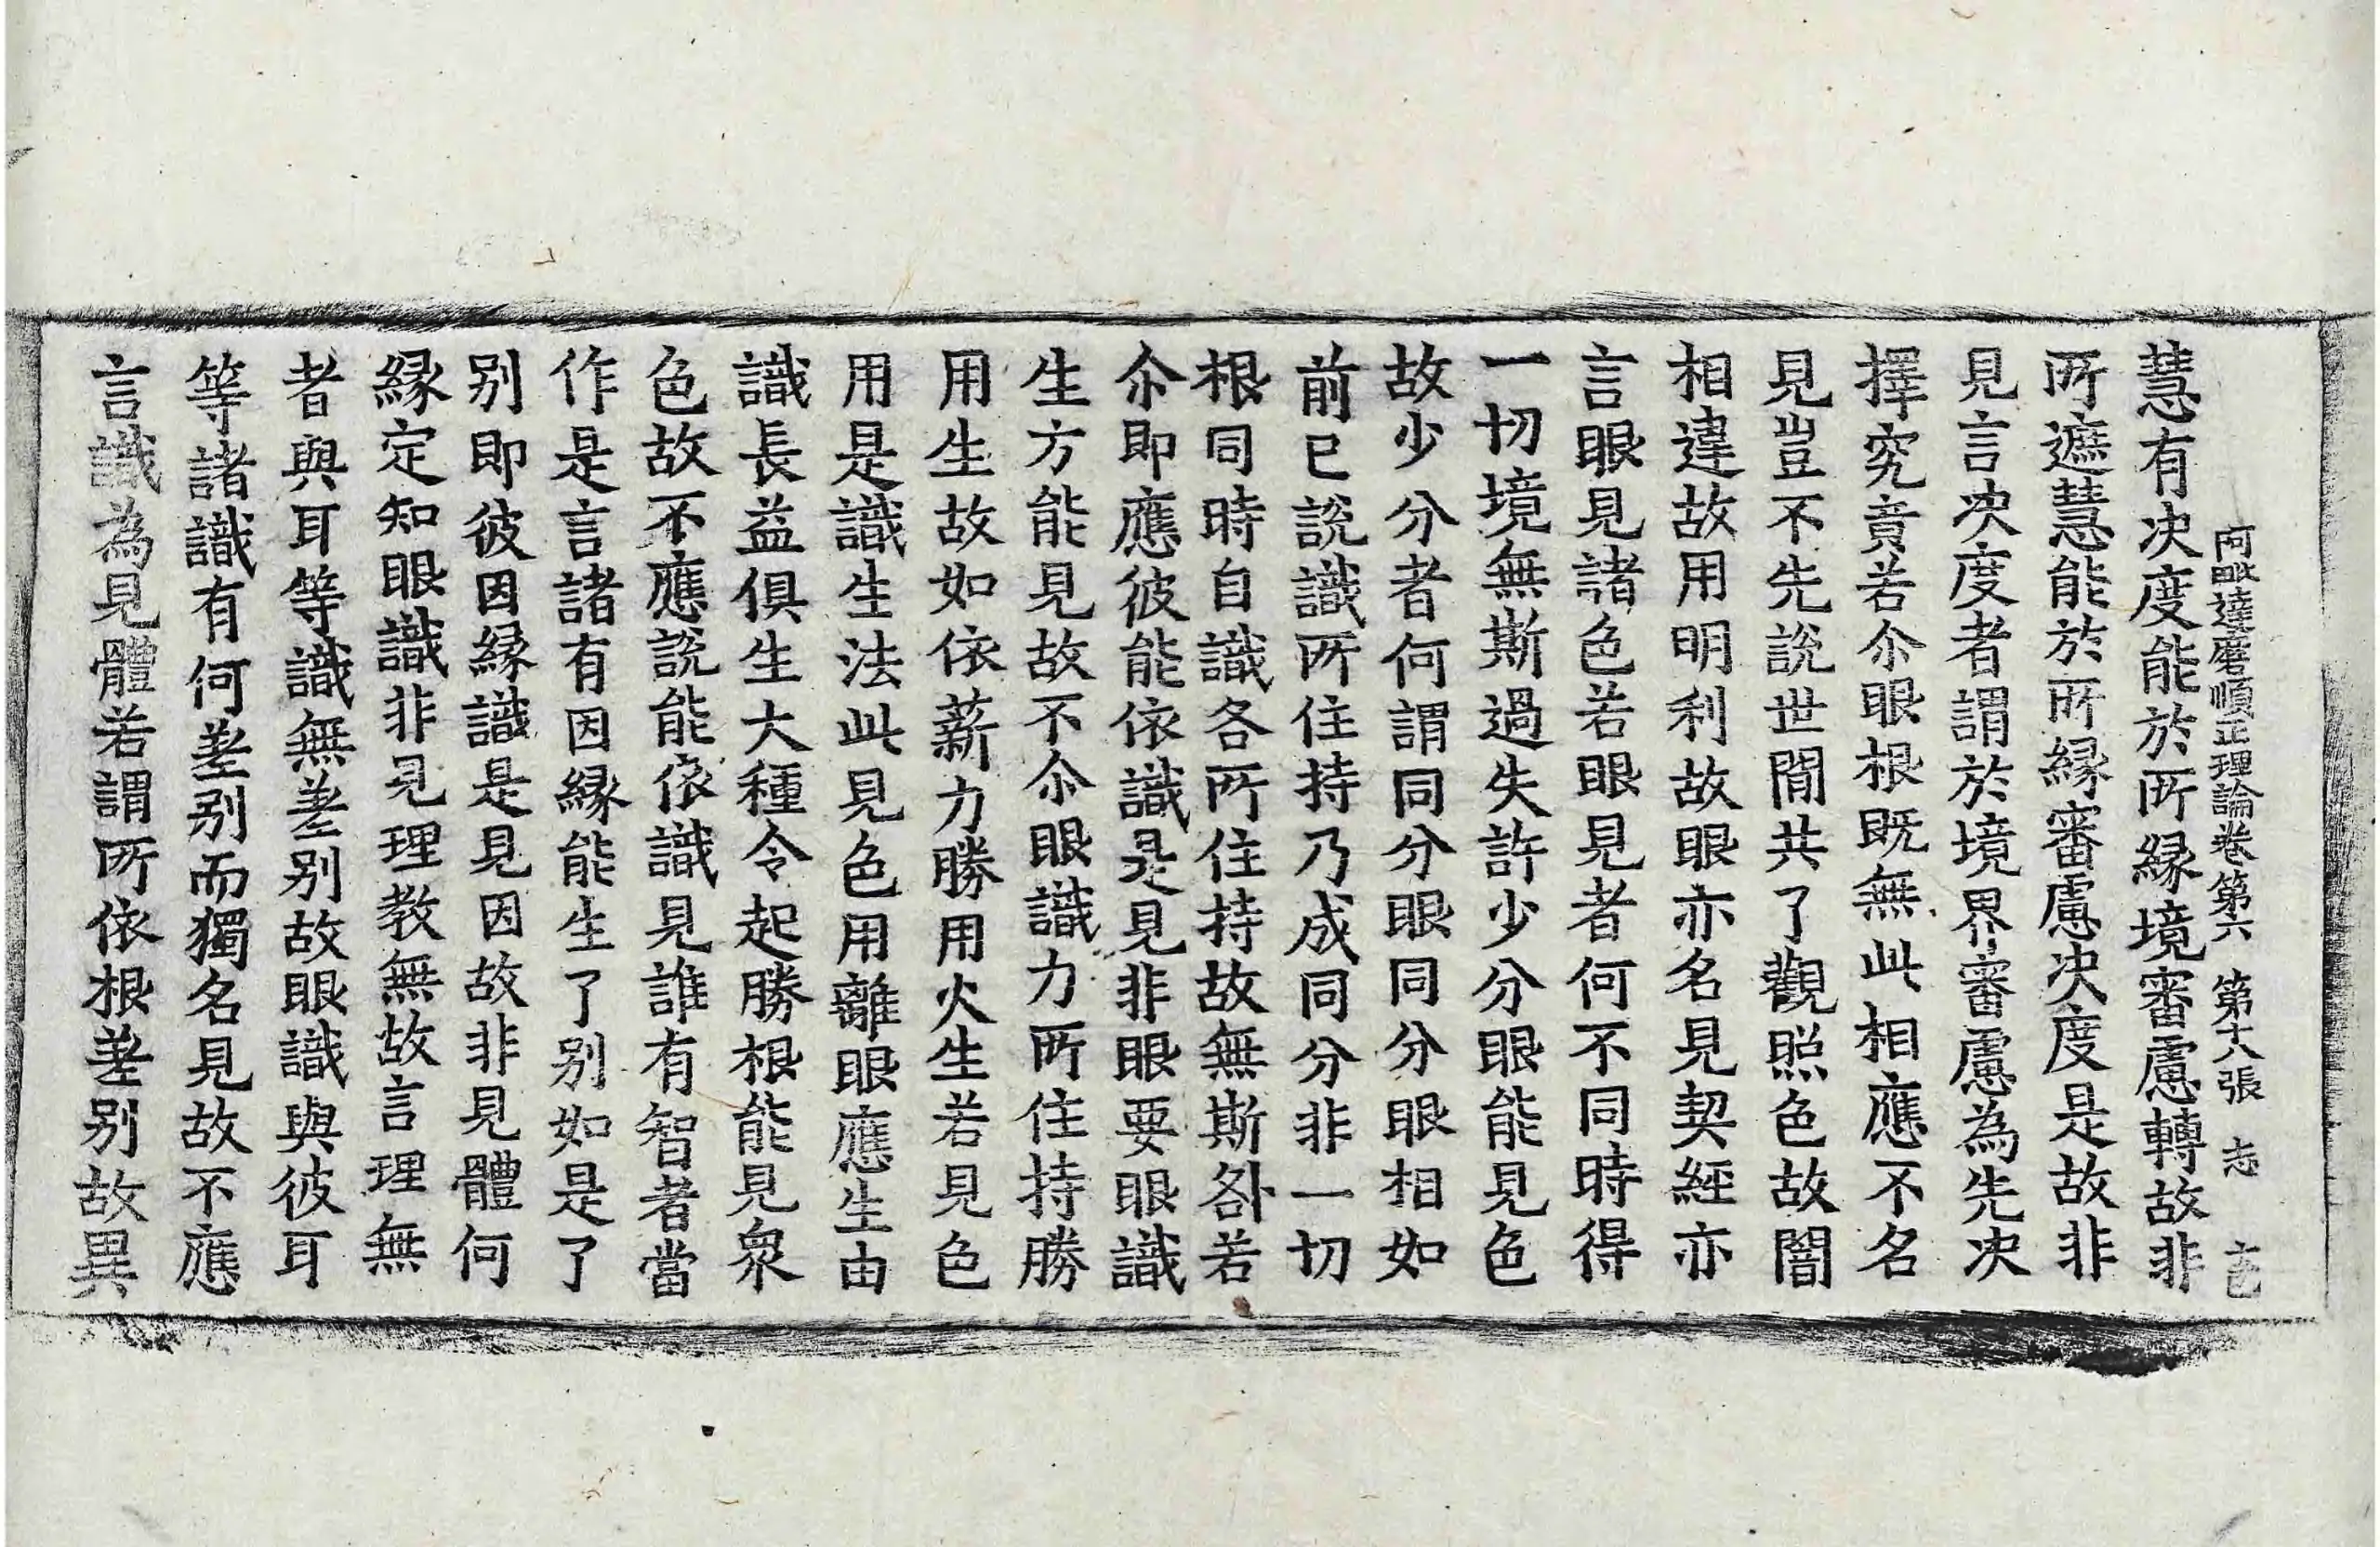 阿毗達磨順正理論卷第六　第十八張　志
慧有決度能於所縁境審慮轉故非
所遮慧能於所縁審慮決度是故非
見言決度者謂於境界審慮為先決
擇究竟若尒眼根既無此相應不名
見豈不先說世間共了觀照色故闇
相違故用明利故眼亦名見契經亦
言眼見諸色若眼見者何不同時得
一切境無斯過失許少分眼能見色
故少分者何謂同分眼同分眼相如
前已說識所住持乃成同分非一切
根同時自識各所住持故無斯咎若
尒即應彼能依識是見非眼要眼識
生方能見故不尒眼識力所住持勝
用生故如依薪力勝用火生若見色
用是識生法此見色用離眼應生由
識長益俱生大種令起勝根能見衆
色故不應說能依識見誰有智者當
作是言諸有因縁能生了別如是了
別即彼因縁識是見因故非見體何
縁定知眼識非見理教無故言理無
者與耳等識無差別故眼識與彼耳
等諸識有何差別而獨名見故不應
言識為見體若謂所依根差別故異